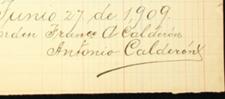 Junio 27 de 1909.
Franco A Calderón
Antonio Calderón